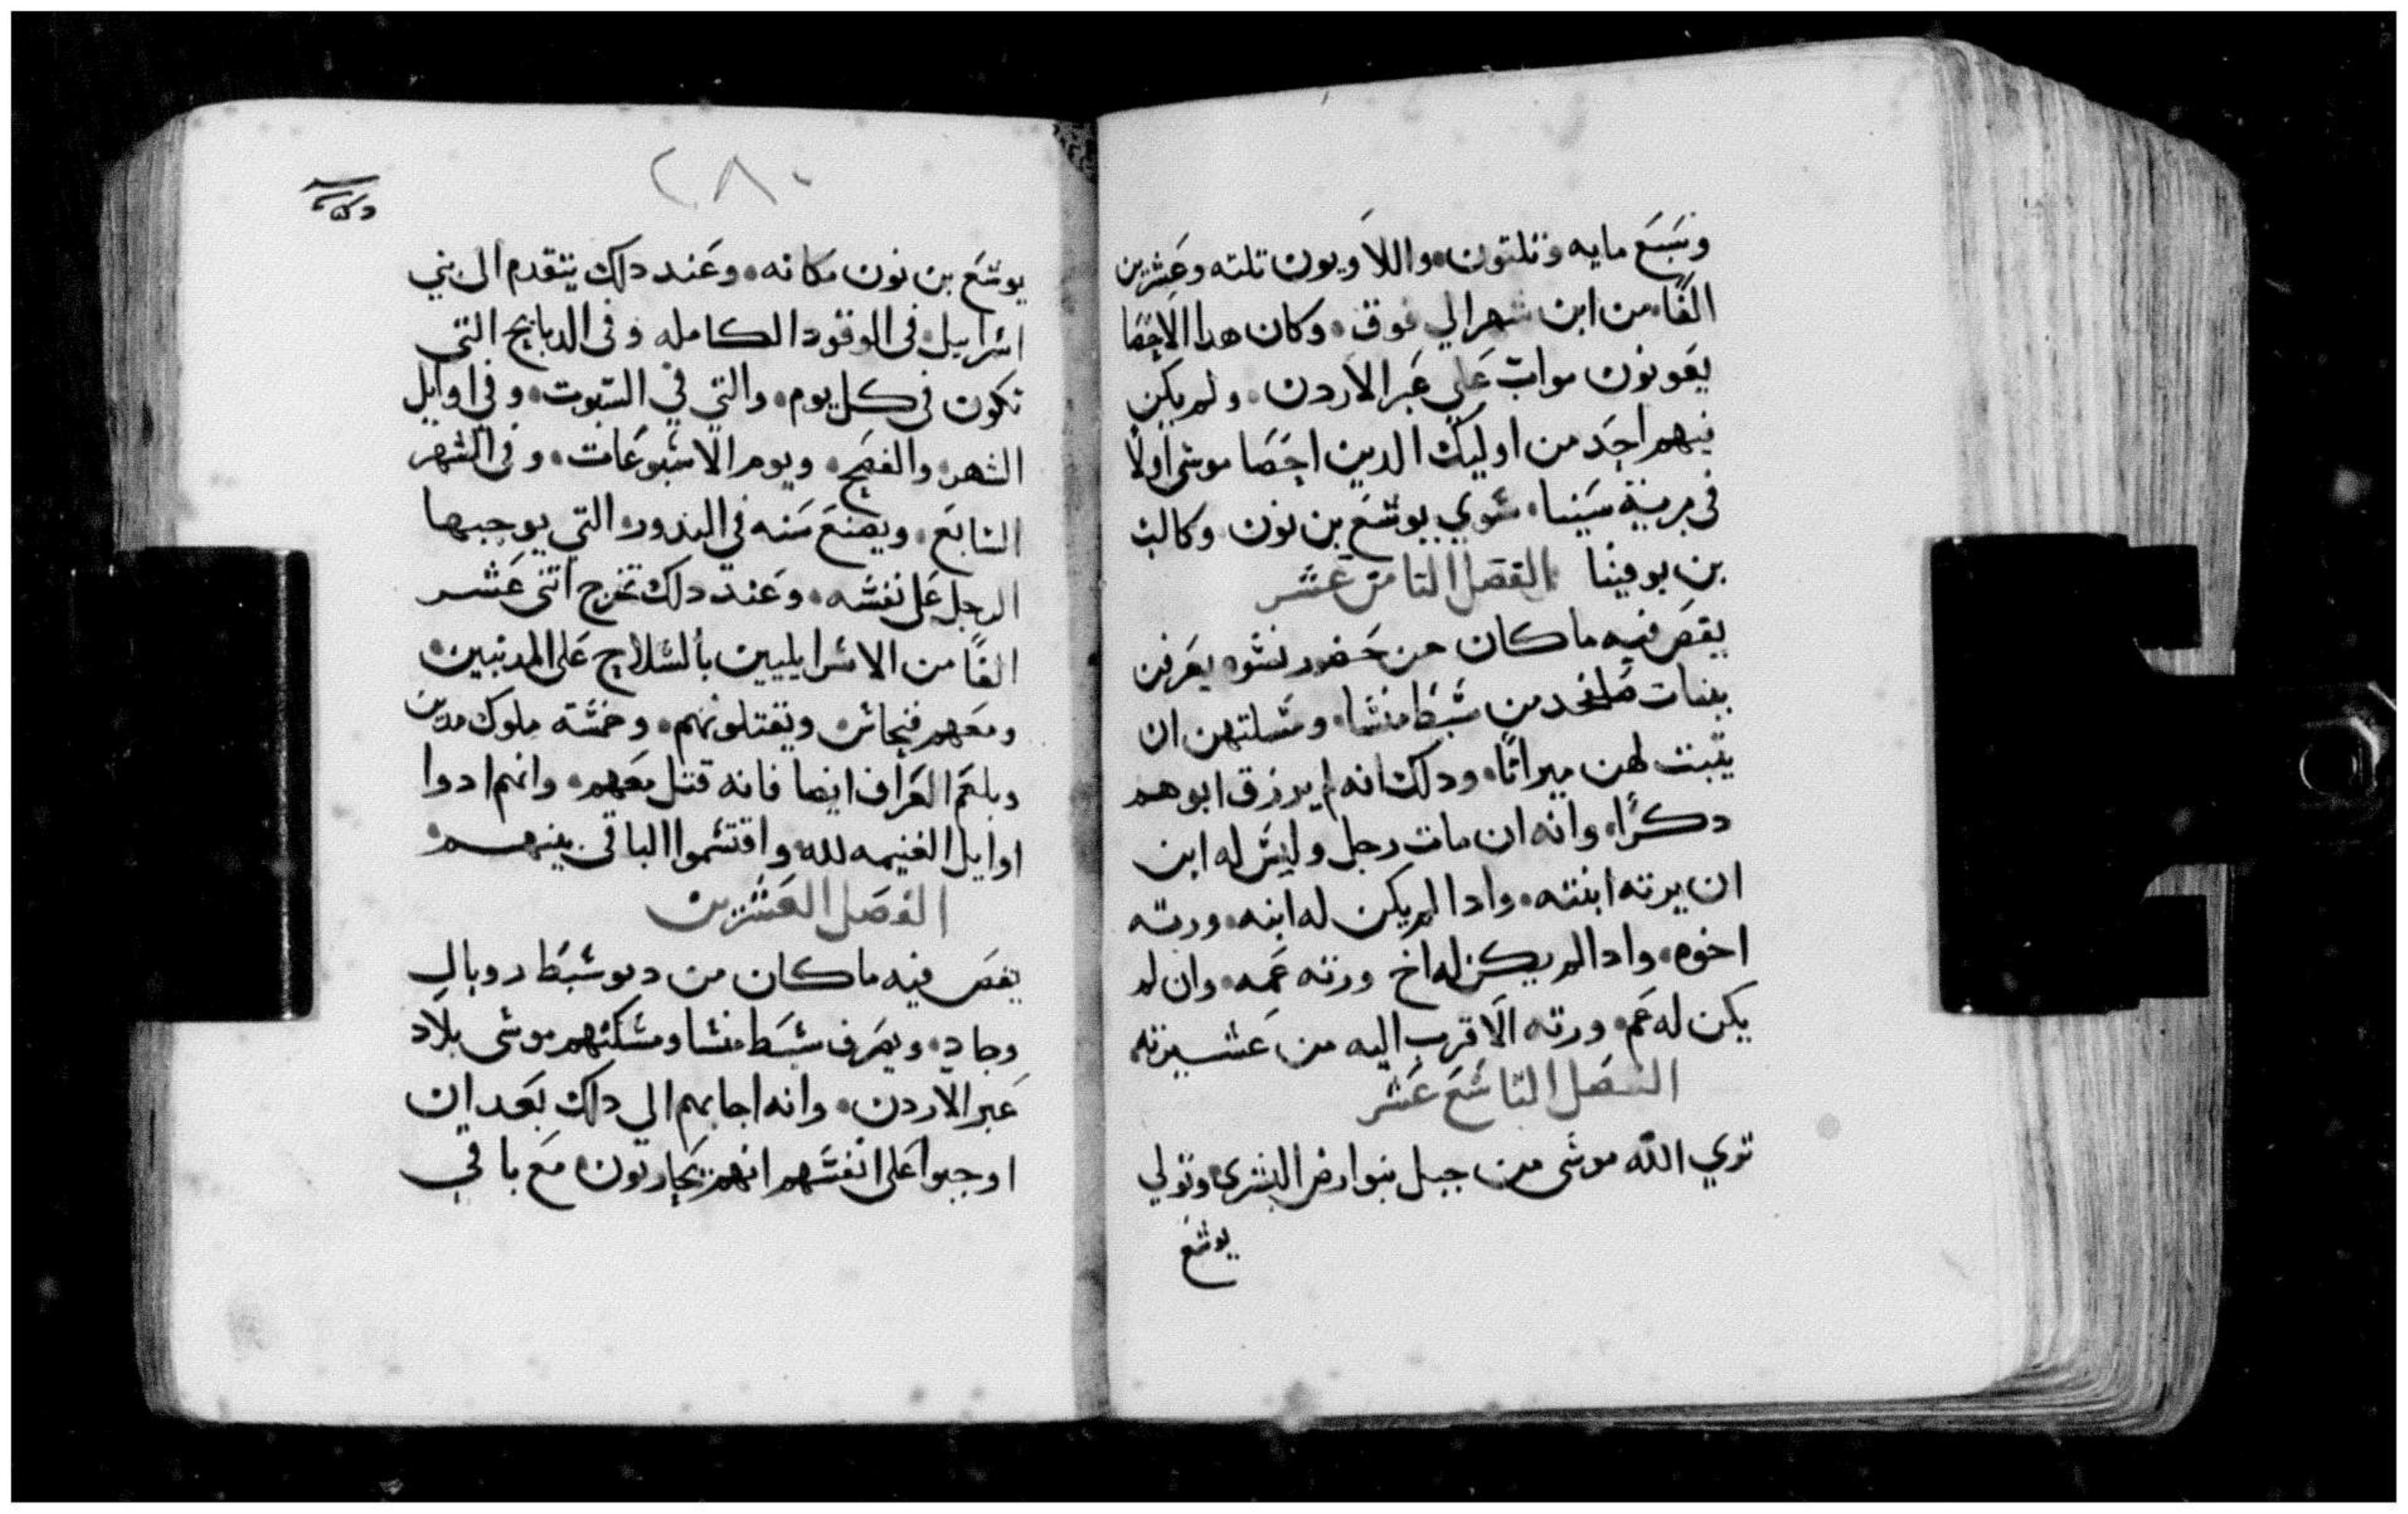 وسبع مايه وتلتون واللاويون تلته وعشرين
الفًا من ابن شهر الي فوق وكان هدا الاحصا
يعونون مواب علي عبر الاردن ولم يكن
فيهم احد من اوليك الدين احصا موسي اولا
في برية سينا سوي يوشع بن نون وكالب
بن يوفينا الفصل التامن عشر
يقص فيه ما كان من حضور نسوه يعرفن
ببنات صلفحد من سبط منشا ومسلتهن ان
يتبت لهن ميراتًا ودلك انه لم يرزق ابوهم
دكرًا وانه ان مات رجل وليس له ابن
ان يرته ابنته وادا لم يكن له ابنه ورته
اخوه وادا لم يكن له اخ ورته عمه وان لم
يكن له عم ورته الاقرب اليه من عشيرته
الفصل التاسع عشر
توري الله موسي من جبل نبوا ارض وتولي
يوشع
٢٨٠
يوشع بن نون مكانه وعند دلك يتقدم الى بني
اسراييل في الوقود الكامله وفي الدبايح التي
تكون في كل يوم والتي في السبوت وفي اوايل
الشهر والفصح ويوم الاسبوعات وفي الشهر
السابع ويصنع سنه في الندور التي يوجبها
الرجل على نفسه وعند دلك تخرج اتنى عشر
الفًا من الاسراييليين بالسلاح على المدينيين
ومعهم فنحاس ويقتلونهم وخمسة ملوك مدين
وبلعم العراف ايضا فانه قتل معهم وانهم ادوا
اوايل الغنيمه لله واقتسموا الباقى بينهم
الفصل العشرين
يقص فيه ما كان من دنو سبط روبال
وجاد ونصف سبط منشا ومسلتهم موسى بلاد
عبر الاردن وانه اجابهم الي دلك بعد ان
اوجبوا على انفسهم انهم يحاربون مع باقي